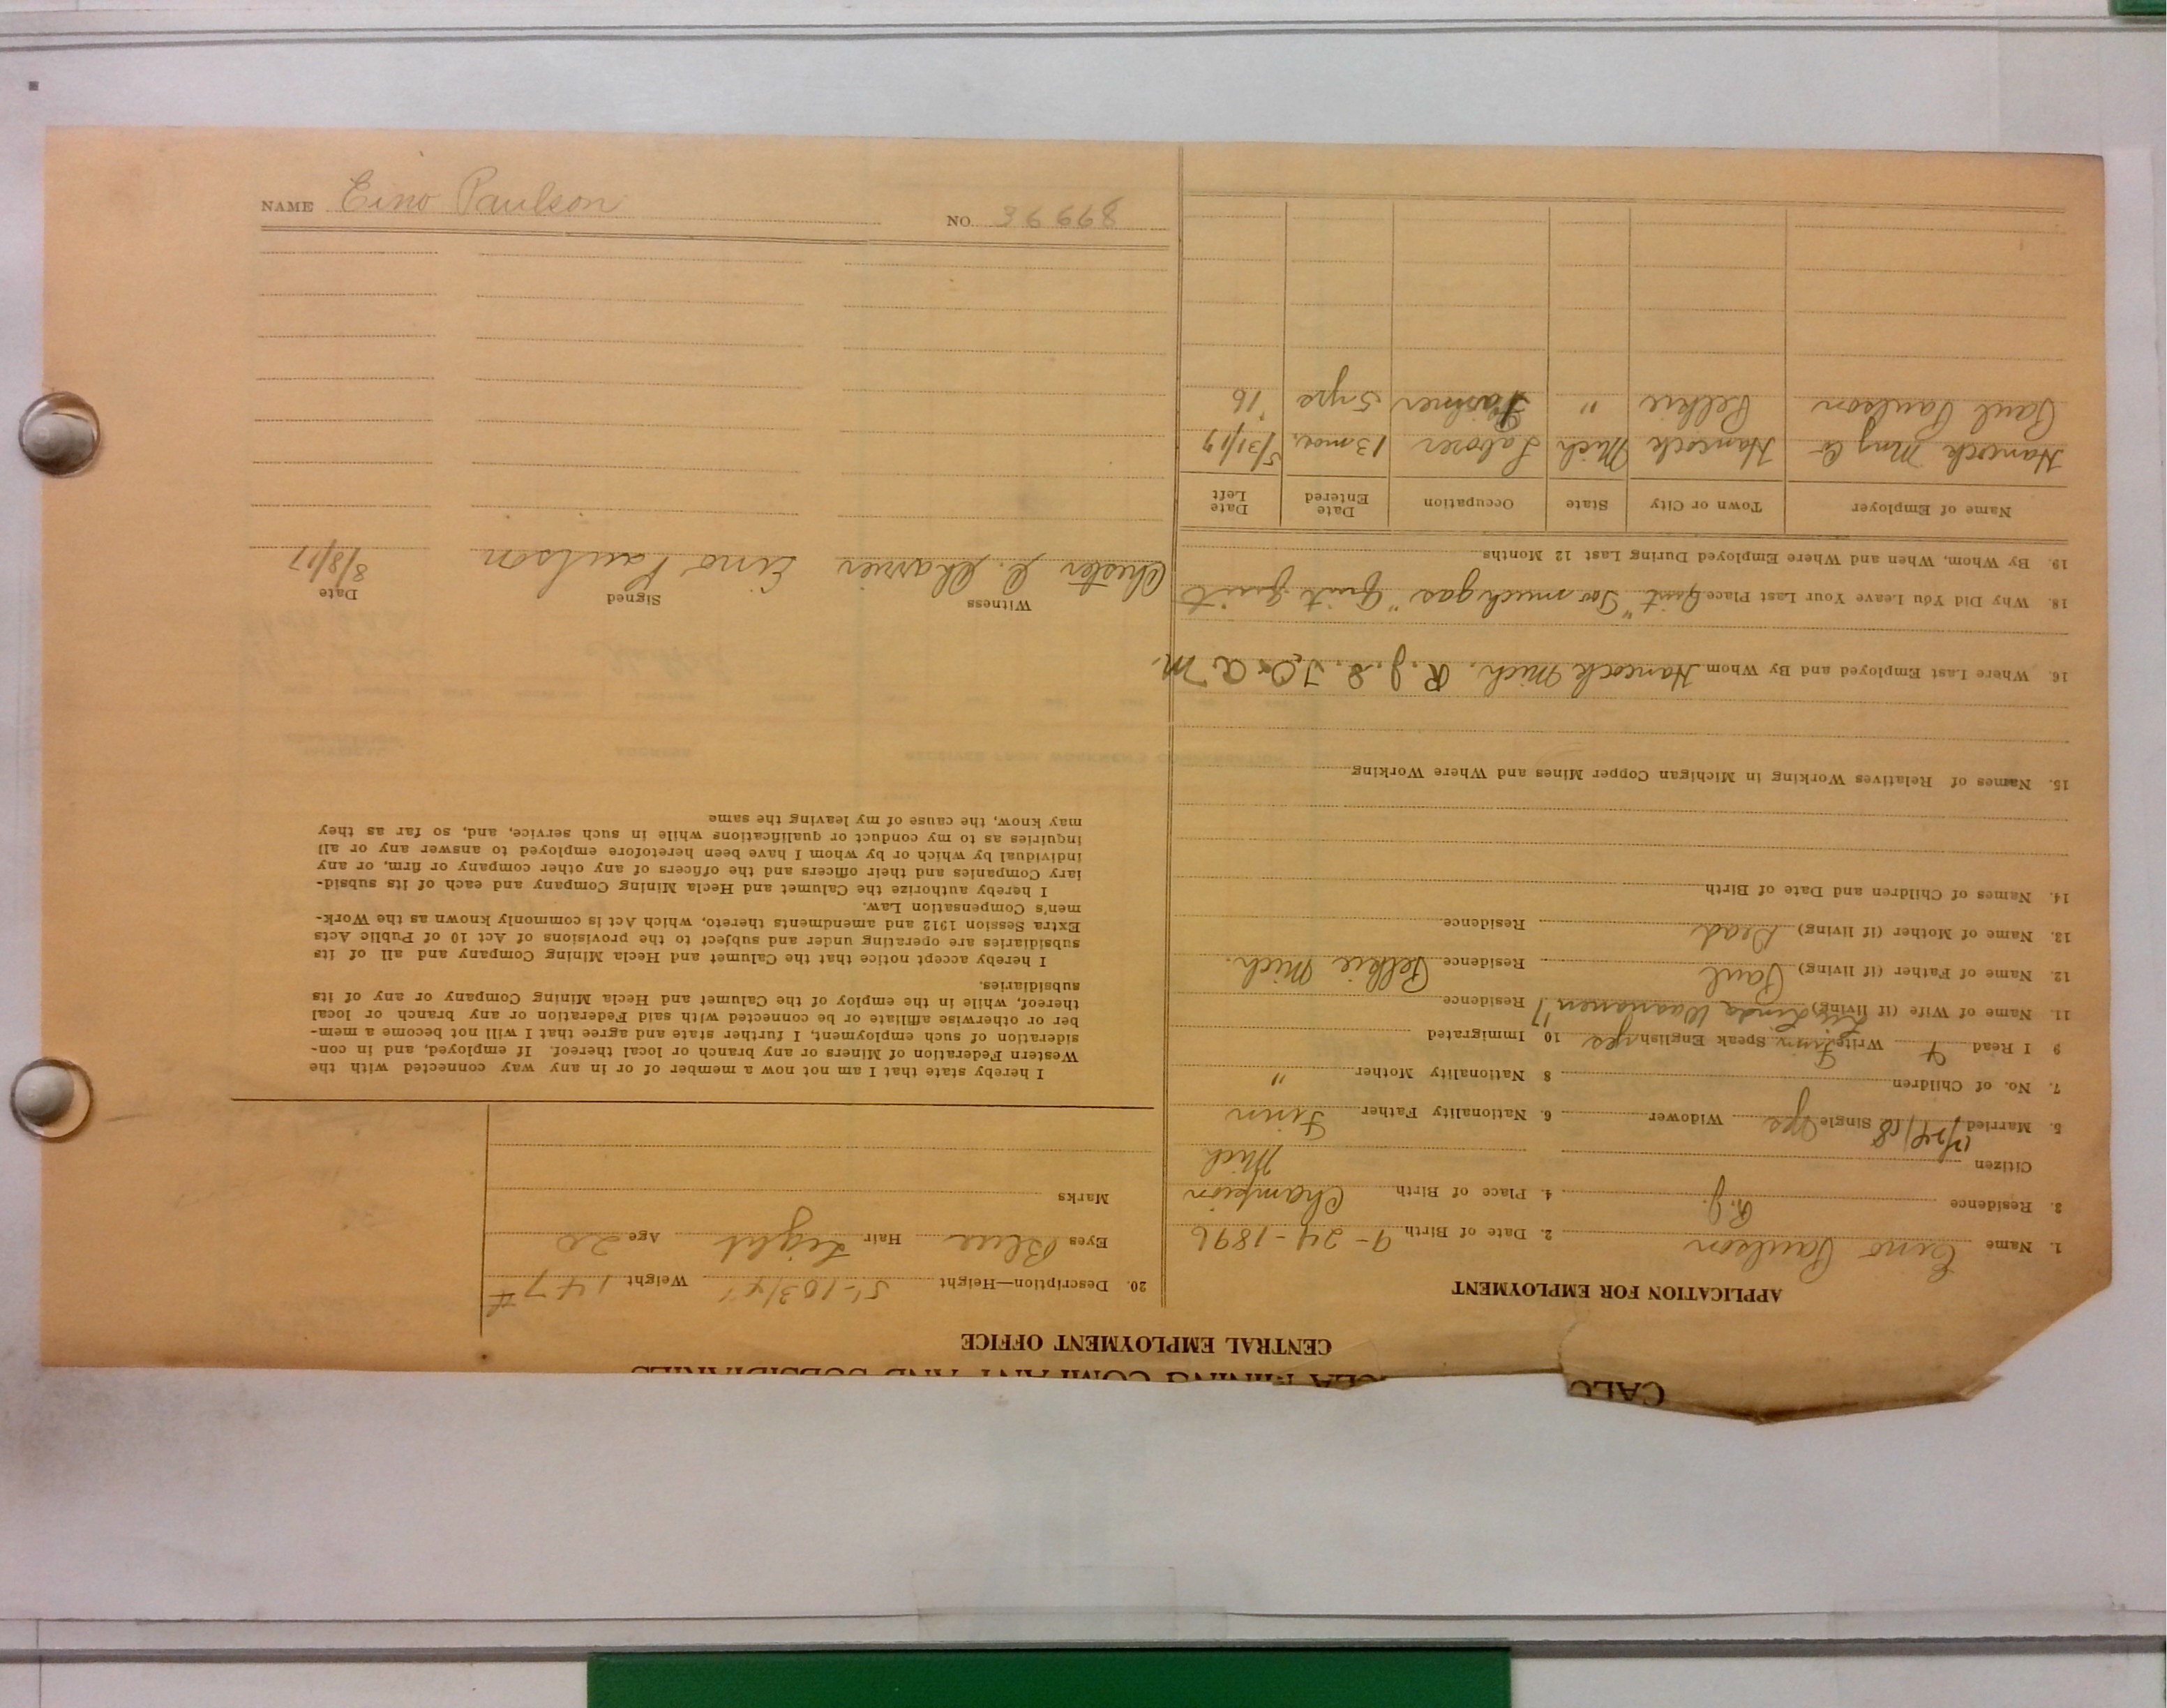 CALU
CLA MINING COMPANY AND SUBSIDIARIES
CENTRAL EMPLOYMENT OFFICE
APPLICATION FOR EMPLOYMENT
1. Name Eino Paulson 2. Date of Birth 9-24-1896
3. Residence R.J. 4. Place of Birth Champion
Citizen Mich
5. Married 12/24/18 Single Yes Widower 6. Nationality Father Finn
7. No. of Children 8 Nationality Mother "
9 I Read Write Finn Speak English yes 10 Immigrated
11. Name of Wife (if living) Linda Residence
12. Name of Father (if living) Paul Residence Pelkie Mich.
13. Name of Mother (if living) Dead Residence
14. Names of Children and Date of Birth
15. Names of Relatives Working in Michigan Copper Mines and Where Working
16. Where Last Employed and By Whom Hancock Mich. R. J.
18. Why Did You Leave Your Last Place Quit "Too much gas" Quit quit
19. By Whom, When and Where Employed During Last 12 Months
Name of Employer Town or City State Occupation Date Entered Date Left
Hancock Mng Co Hancock Mich Laborer 13 mos. 5/31/17
Paul Paulson Pelkie " Farmer 5 yrs '16
20. Description—Height 5'-10 3/4" Weight 147#
Eyes Blue Hair Light Age 20
Marks
I hereby state that I am not now a member of or in any way connected with the
Western Federation of Miners or any branch or local thereof. If employed, and in con-
sideration of such employment, I further state and agree that I will not become a mem-
ber or otherwise affiliate or be connected with said Federation or any branch or local
thereof, while in the employ of the Calumet and Hecla Mining Company or any of its
subsidiaries.
I hereby accept notice that the Calumet and Hecla Mining Company and all of its
subsidiaries are operating under and subject to the provisions of Act 10 of Public Acts
Extra Session 1912 and amendments thereto, which Act is commonly known as the Work-
men's Compensation Law.
I hereby authorize the Calumet and Hecla Mining Company and each of its subsid-
iary Companies and their officers and the officers of any other company or firm, or any
individual by which or by whom I have been heretofore employed to answer any or all
inquiries as to my conduct or qualifications while in such service, and, so far as they
may know, the cause of my leaving the same
Witness Signed Date
Chester Eino Paulson 8/8/17
NAME Eino Paulson NO.